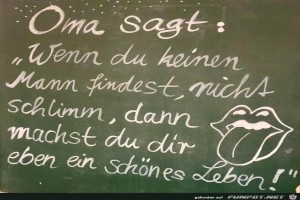 Oma sagt:
„Wenn du keinen
Mann findest, nicht
schlimm, dann
machst du dir
eben ein schönes Leben!"
gefunden auf FUNPOT.NET